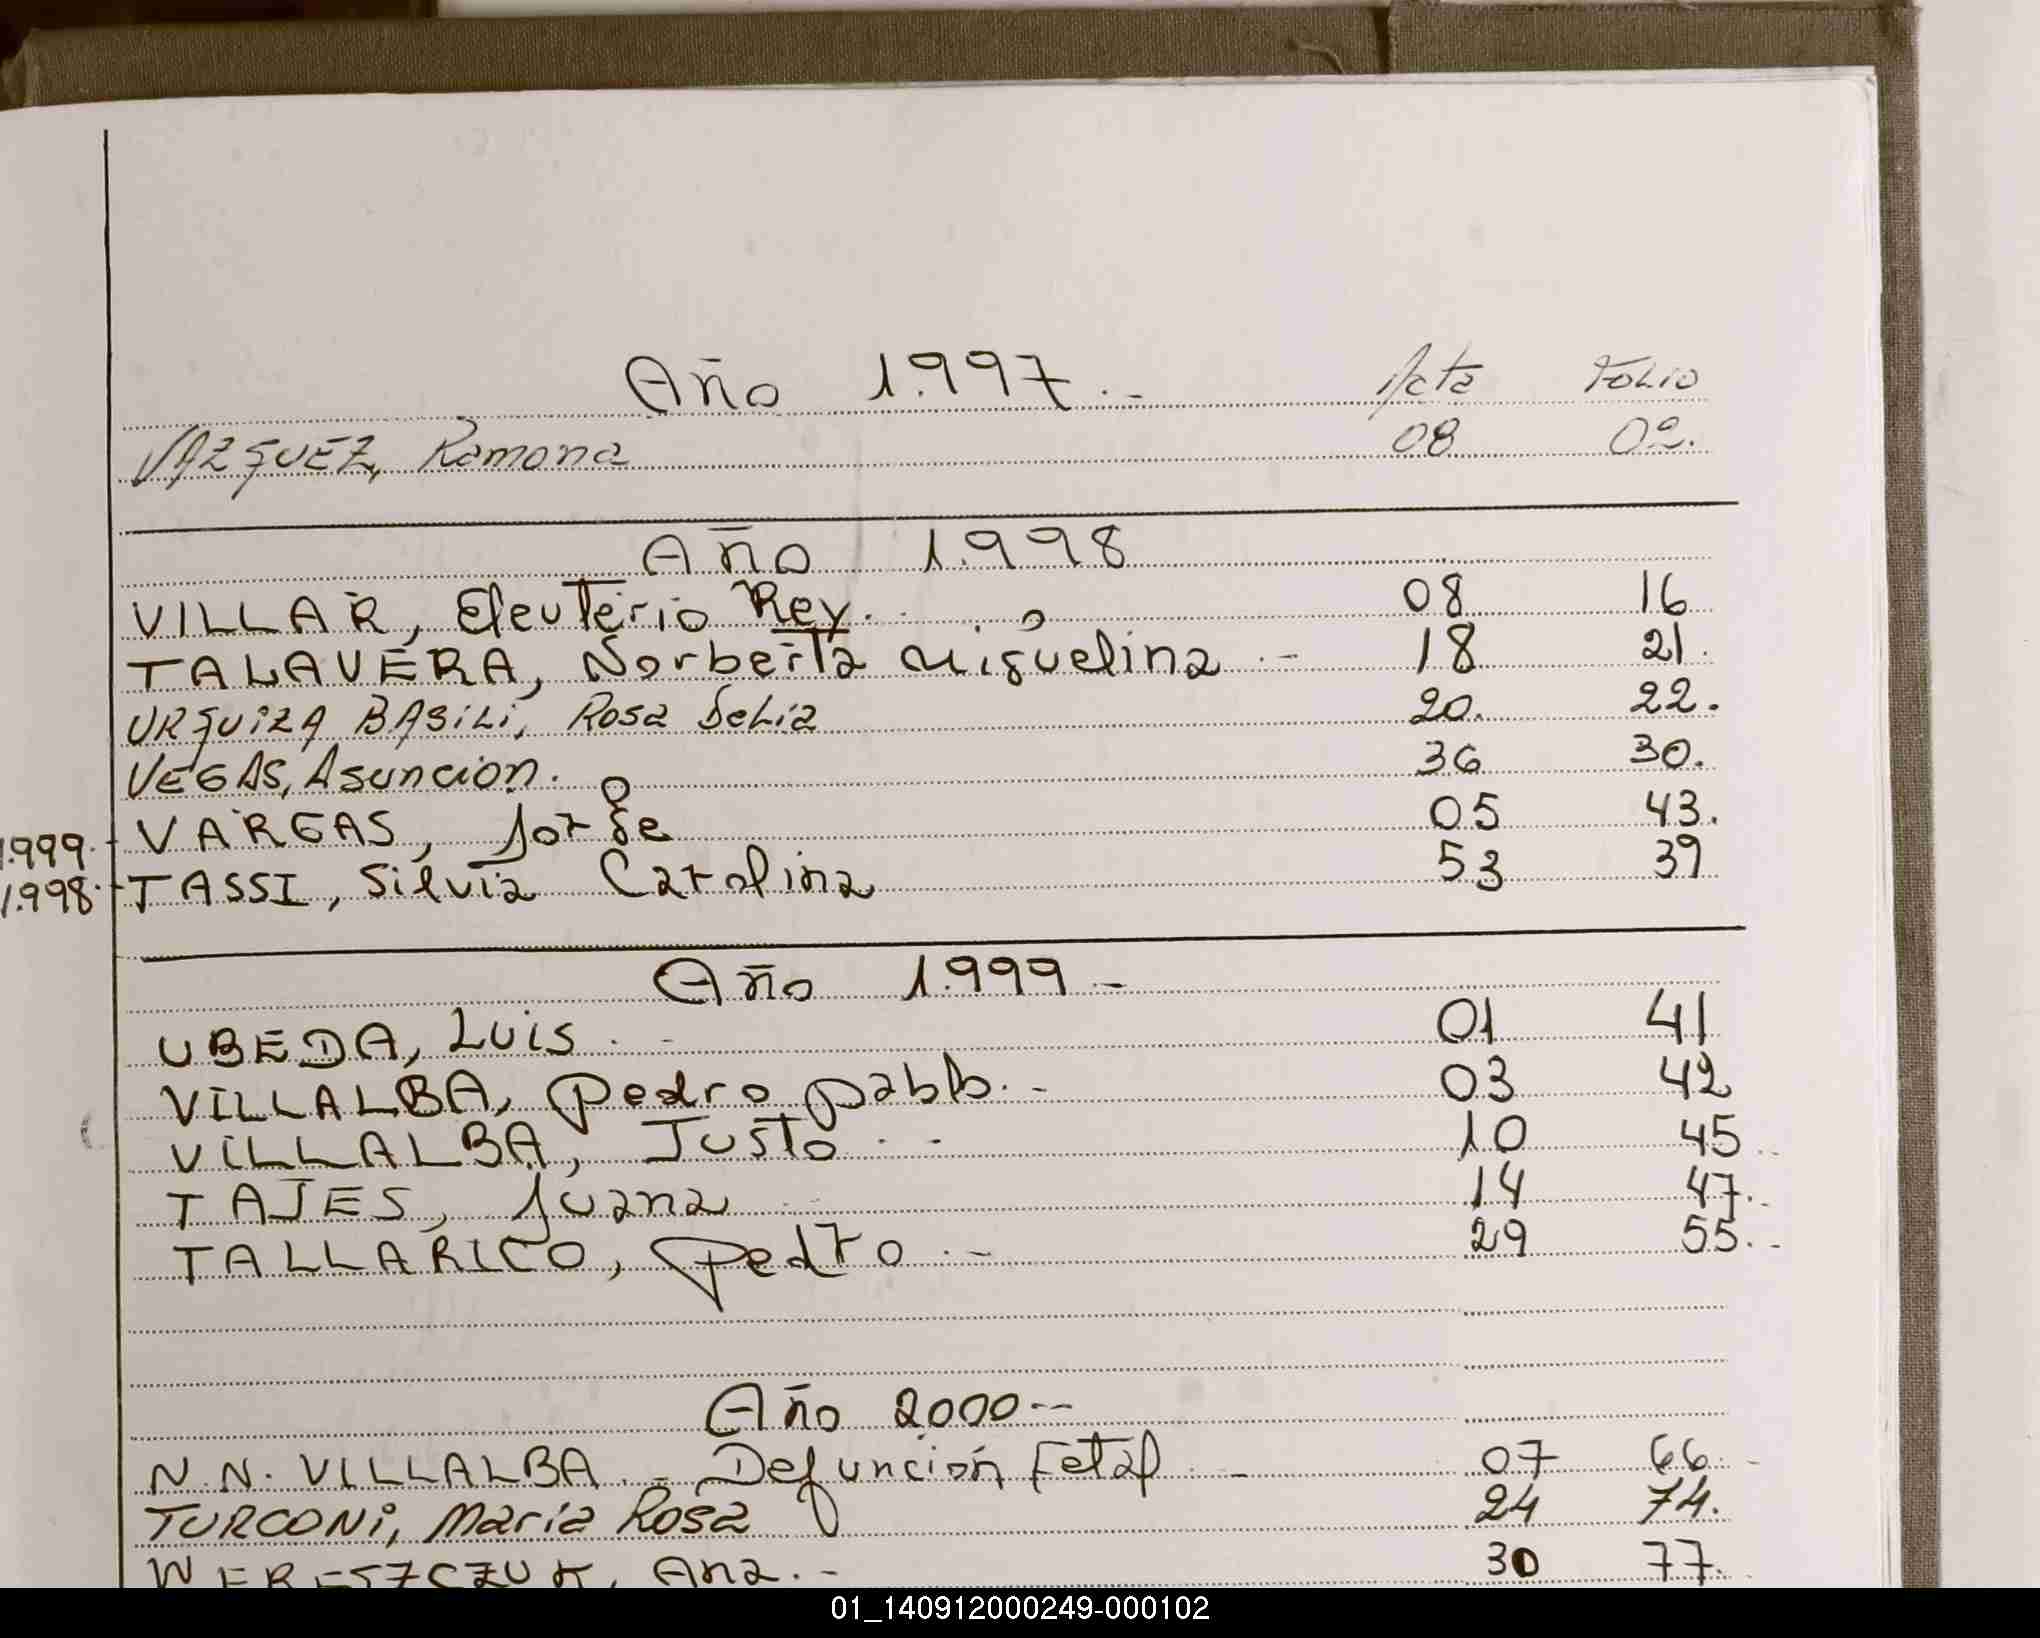 Año 1.997.- Acta Folio
VAZQUEZ, Ramona 08 02.
Año 1.998
VILLAR, Eleuterio Rey. 08 16
TALAVERA, Norberta Miguelina.- 18 21.
URQUIZA BASILI, Rosa Delia 20. 22.
VEGAS, Asuncion. 36 30.
1.999.- VARGAS, Jorge 05 43.
1.998.- TASSI, Silvia Carolina 53 39
Año 1.999-
UBEDA, Luis.- 01 41
VILLALBA, Pedro Pablo.- 03 42
VILLALBA, Justo.- 10 45.-
TAJES, Juana 14 47.-
TALLARICO, Pedro.- 29 55.-
Año 2.000--
N.N. VILLALBA.- Defunción Fetal.- 07 66.-
TURCONI, María Rosa 24 74.
WERESZCZUK, Ana.- 30 77.
01_140912000249-000102